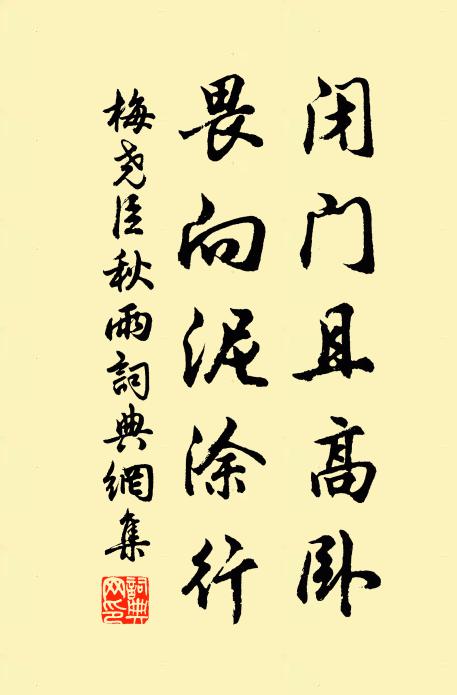 闭门且高卧
畏向泥涂行
梅尧臣秋雨詞典網集
詞典網印